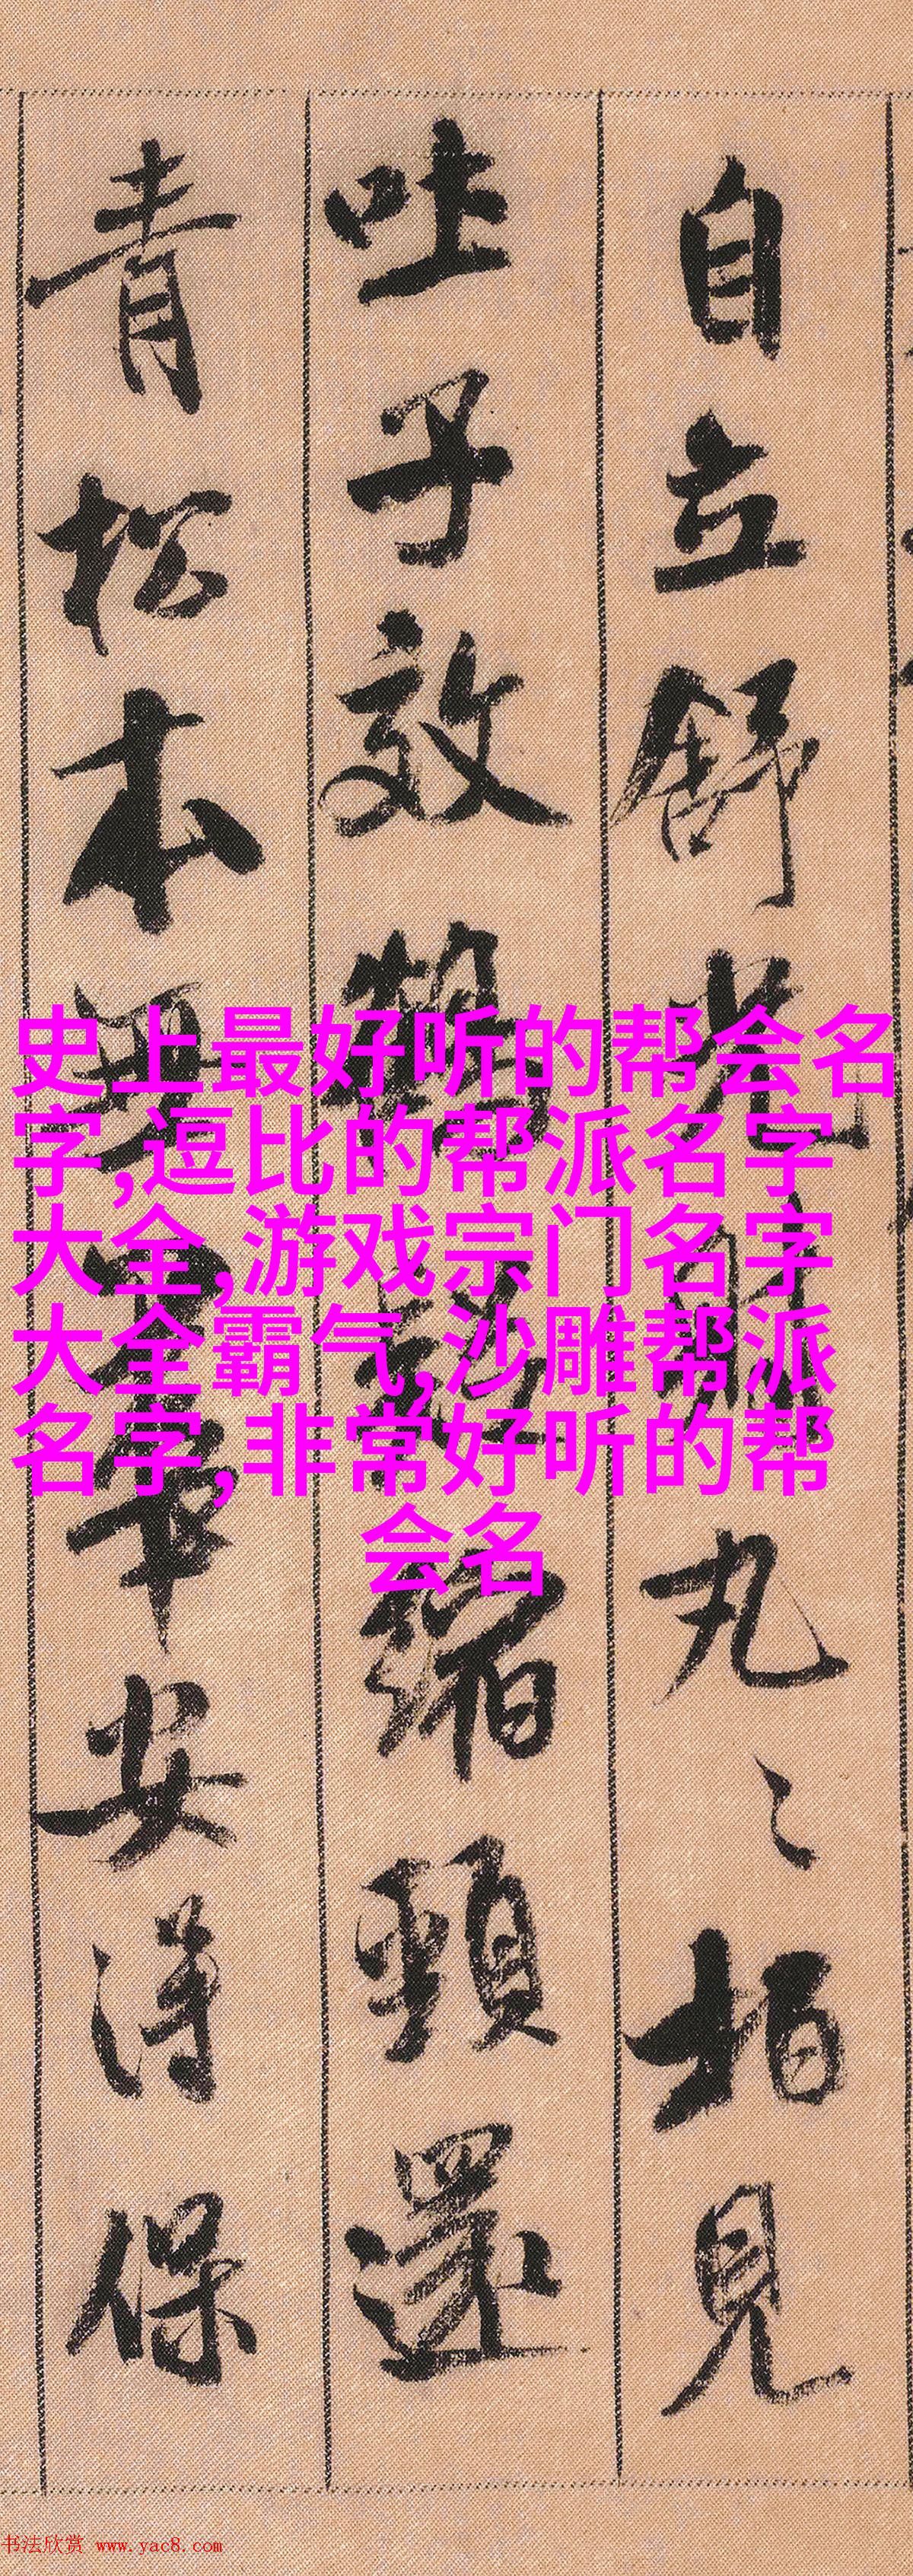 自立舒光射丸〻柏見
吐子效鶴疑縮頸還
青松本無華安得保
史上最好听的帮会名
字,逗比的帮派名字
大全,游戏宗门名字
大全霸气,沙雕帮派
名字,非常好听的帮
会名
书法欣赏 www.yac8.com